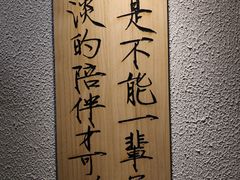 是不能一輩
淡的陪伴才可